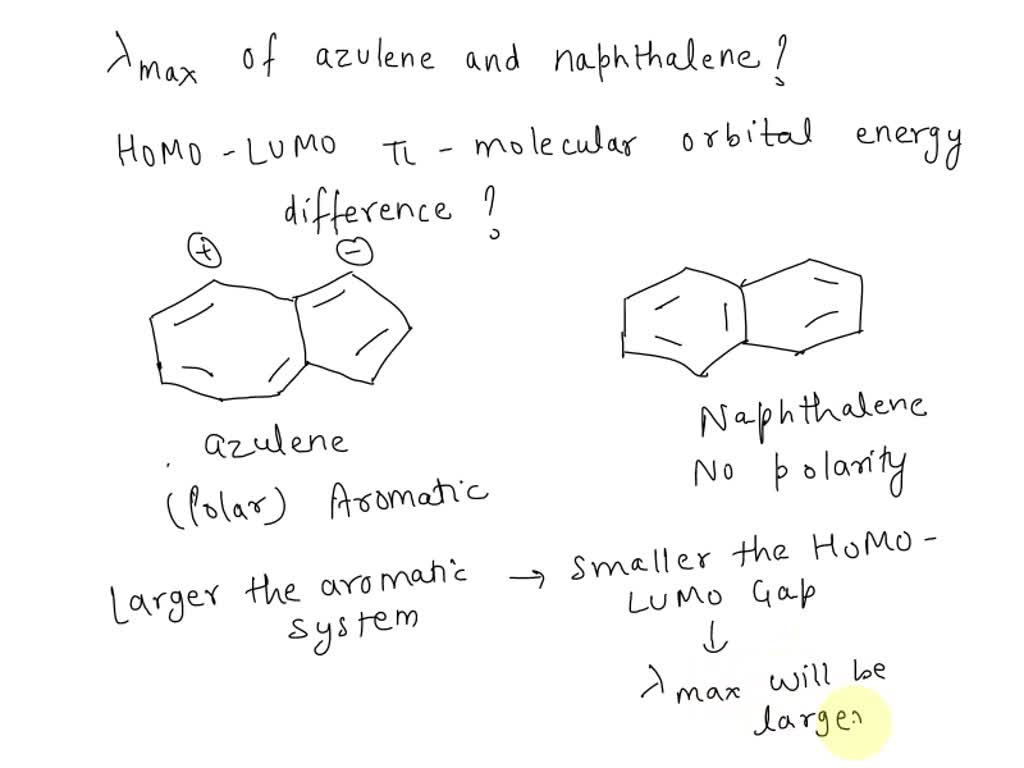 λmax of azulene and naphthalene?
HOMO - LUMO π - molecular orbital energy
difference?
+ −
azulene
(Polar) Aromatic
Naphthalene
No polarity
Larger the aromatic
system
→ smaller the HOMO -
LUMO Gap
↓
λmax will be
larger